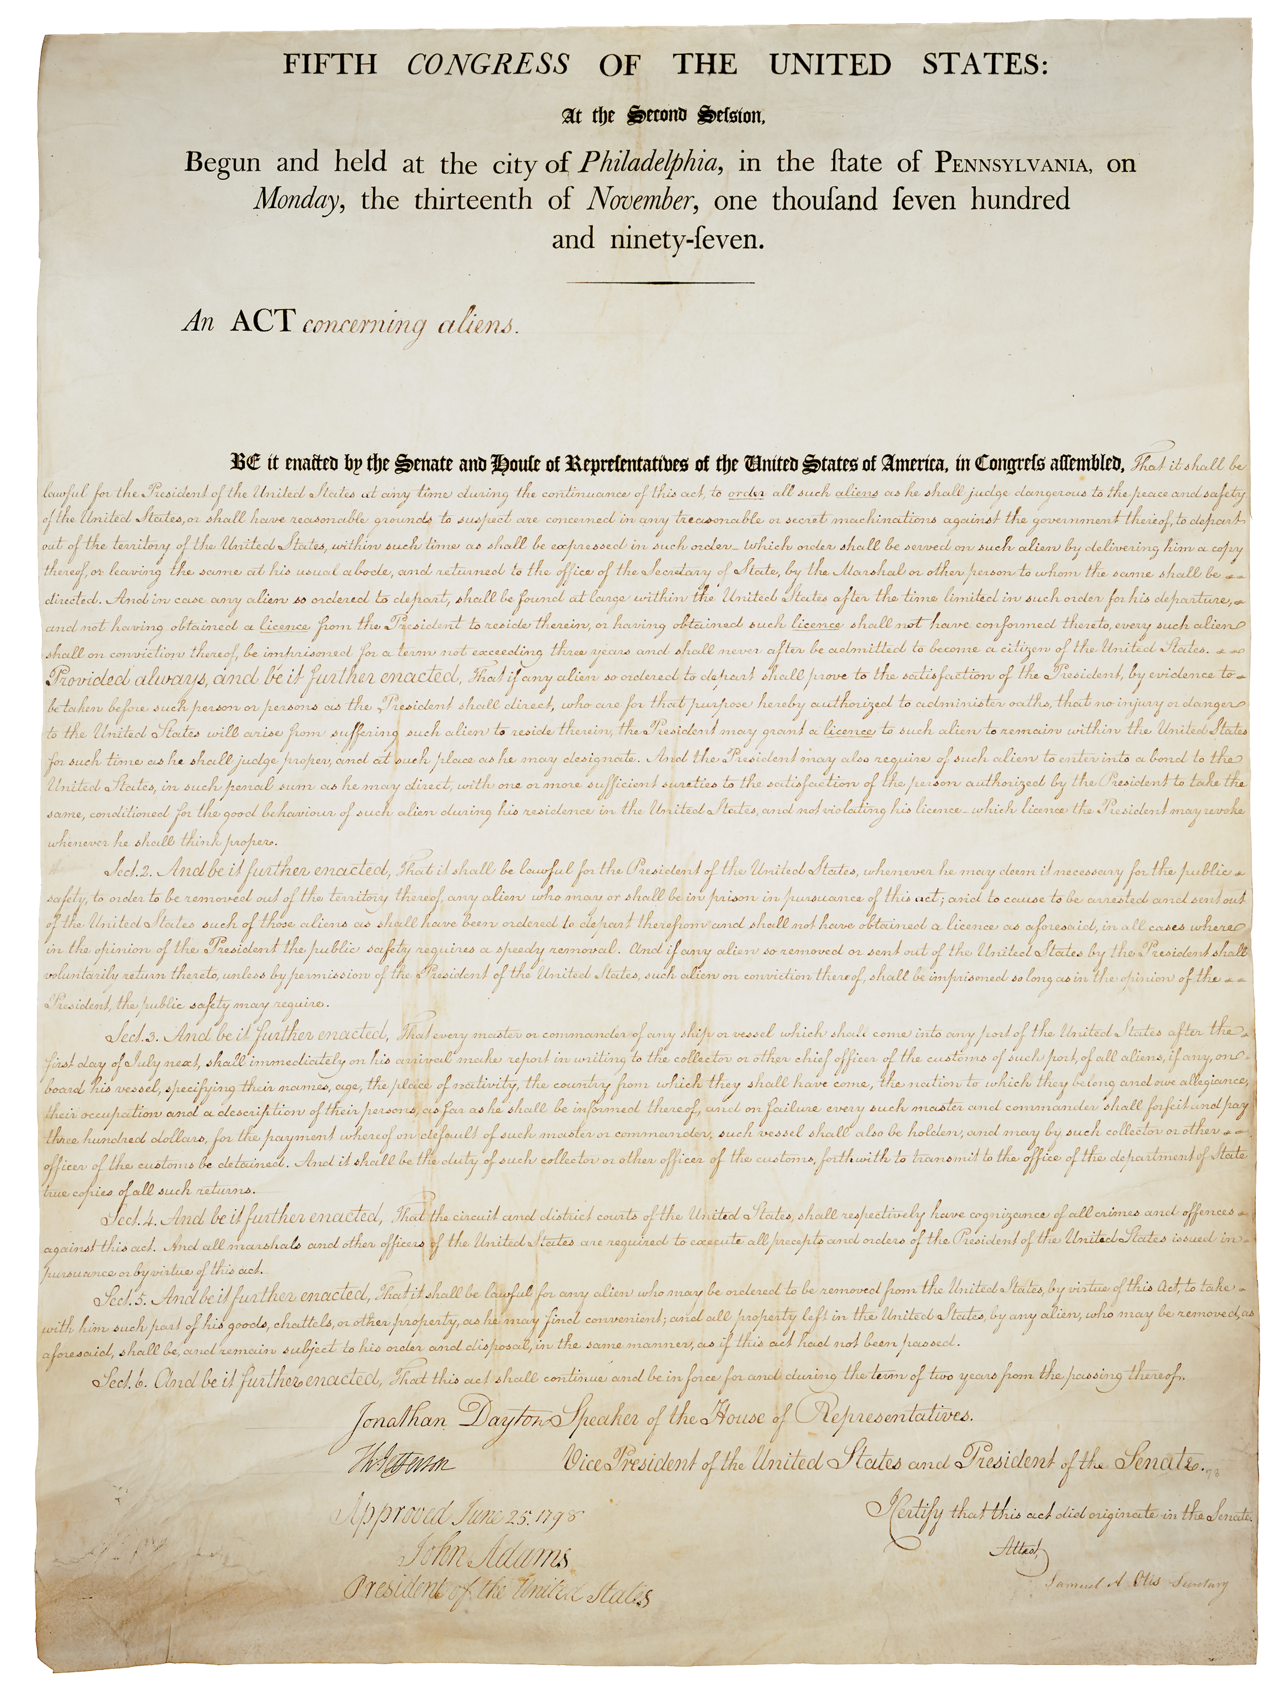 FIFTH CONGRESS OF THE UNITED STATES:
At the Second Seſsion,
Begun and held at the city of Philadelphia, in the ſtate of PENNSYLVANIA, on
Monday, the thirteenth of November, one thouſand ſeven hundred
and ninety-ſeven.
An ACT concerning aliens.
BE it enacted by the Senate and Houſe of Repreſentatives of the United States of America, in Congreſs aſſembled, That it shall be
lawful for the President of the United States at any time during the continuance of this act, to order all such aliens as he shall judge dangerous to the peace and safety
of the United States, or shall have reasonable grounds to suspect are concerned in any treasonable or secret machinations against the government thereof, to depart
out of the territory of the United States, within such time as shall be expressed in such order_ which order shall be served on such alien by delivering him a copy
thereof, or leaving the same at his usual abode, and returned to the office of the Secretary of State, by the Marshal or other person to whom the same shall be
directed. And in case any alien so ordered to depart, shall be found at large within the United States after the time limited in such order for his departure,
and not having obtained a licence from the President to reside therein, or having obtained such licence shall not have conformed thereto, every such alien
shall on conviction thereof, be imprisoned for a term not exceeding three years and shall never after be admitted to become a citizen of the United States.
Provided always, and be it further enacted, That if any alien so ordered to depart shall prove to the satisfaction of the President, by evidence to
be taken before such person or persons as the President shall direct, who are for that purpose hereby authorized to administer oaths, that no injury or danger
to the United States will arise from suffering such alien to reside therein, the President may grant a licence to such alien to remain within the United States
for such time as he shall judge proper, and at such place as he may designate. And the President may also require of such alien to enter into a bond to the
United States, in such penal sum as he may direct, with one or more sufficient sureties to the satisfaction of the person authorized by the President to take the
same, conditioned for the good behaviour of such alien during his residence in the United States, and not violating his licence_ which licence the President may revoke
whenever he shall think proper.
Sect. 2. And be it further enacted, That it shall be lawful for the President of the United States, whenever he may deem it necessary for the public
safety, to order to be removed out of the territory thereof, any alien who may or shall be in prison in pursuance of this act; and to cause to be arrested and sent out
of the United States such of those aliens as shall have been ordered to depart therefrom and shall not have obtained a licence as aforesaid, in all cases where
in the opinion of the President the public safety requires a speedy removal. And if any alien so removed or sent out of the United States by the President shall
voluntarily return thereto, unless by permission of the President of the United States, such alien on conviction thereof, shall be imprisoned so long as in the opinion of the
President, the public safety may require.
Sect. 3. And be it further enacted, That every master or commander of any ship or vessel which shall come into any port of the United States after the
first day of July next, shall immediately on his arrival make report in writing to the collector or other chief officer of the customs of such port, of all aliens, if any, on
board his vessel, specifying their names, age, the place of nativity, the country from which they shall have come, the nation to which they belong and owe allegiance,
their occupation and a description of their persons, as far as he shall be informed thereof, and on failure every such master and commander shall forfeit and pay
three hundred dollars, for the payment whereof on default of such master or commander, such vessel shall also be holden, and may by such collector or other
officer of the customs be detained. And it shall be the duty of such collector or other officer of the customs, forthwith to transmit to the office of the department of State
true copies of all such returns.
Sect. 4. And be it further enacted, That the circuit and district courts of the United States, shall respectively have cognizance of all crimes and offences
against this act. And all marshals and other officers of the United States are required to execute all precepts and orders of the President of the United States issued in
pursuance or by virtue of this act.
Sect. 5. And be it further enacted, That it shall be lawful for any alien who may be ordered to be removed from the United States, by virtue of this Act, to take
with him such part of his goods, chattels, or other property, as he may find convenient; and all property left in the United States, by any alien, who may be removed, as
aforesaid, shall be, and remain subject to his order and disposal, in the same manner, as if this act had not been passed.
Sect. 6. And be it further enacted, That this act shall continue and be in force for and during the term of two years from the passing thereof.
Jonathan Dayton Speaker of the House of Representatives.
Th Jefferson Vice President of the United States and President of the Senate.
Approved June 25. 1798
I Certify that this act did originate in the Senate.
John Adams
Attest,
President of the United States
Samuel A Otis Secretary